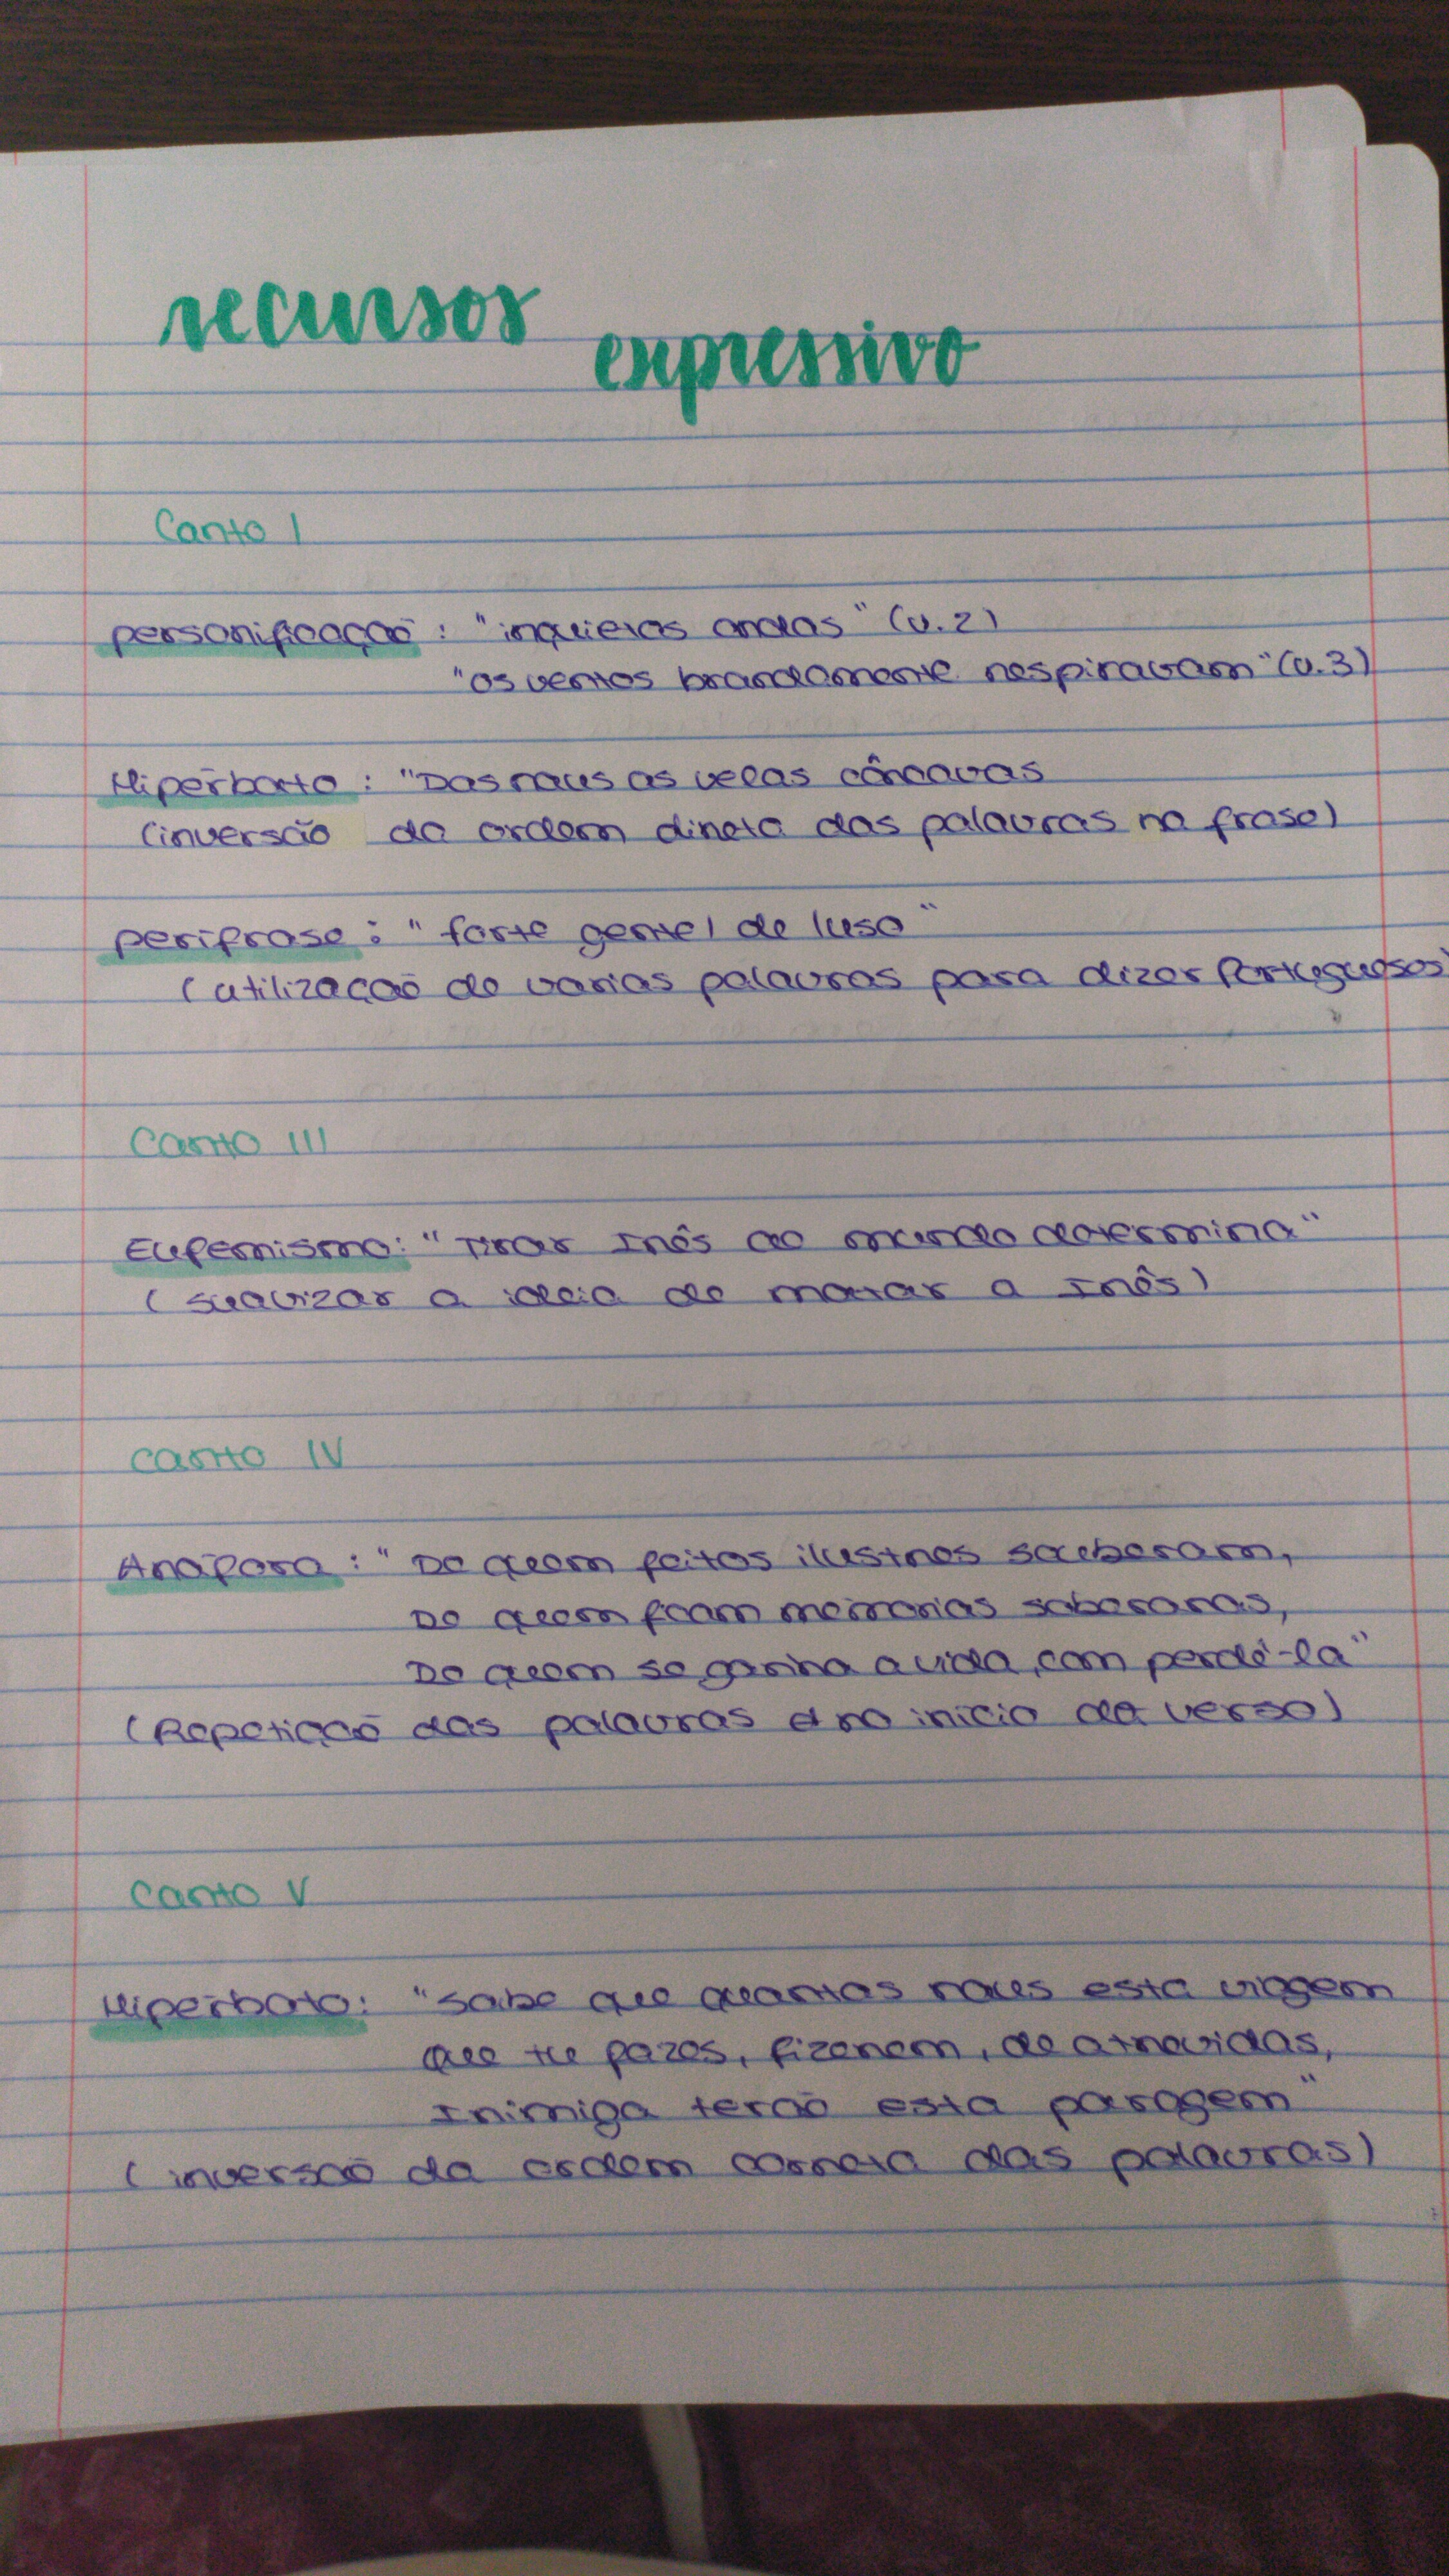 recursos
expressivo
Canto I
personificação : "inquietas ondas" (v.2)
"os ventos brandamente respiravam" (v.3)
Hipérbato : "Das naus as velas côncavas
(inversão da ordem direta das palavras na frase)
perífrase : "forte gente/ de luso"
(utilização de varias palavras para dizer Portugueses)
Canto III
Eufemismo: "Tirar Inês ao mundo determina"
(suavizar a ideia de matar a Inês)
Canto IV
Anáfora : "De quem feitos ilustres souberam,
De quem ficam memorias soberanas,
De quem se ganha a vida, com perdê-la"
(Repetição das palavras no inicio do verso)
Canto V
Hipérbato: "Sabe que quantas naus esta viagem
que tu fazes, fizerem, de atrevidas,
Inimiga terão esta paragem"
(inversão da ordem correta das palavras)